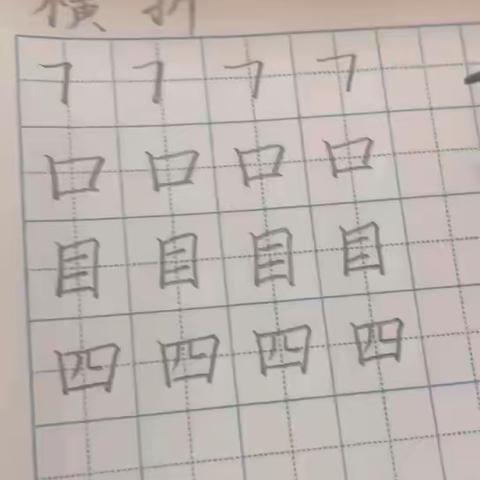 横折
㇕ ㇕ ㇕ ㇕
口 口 口 口
目 目 目 目
四 四 四 四